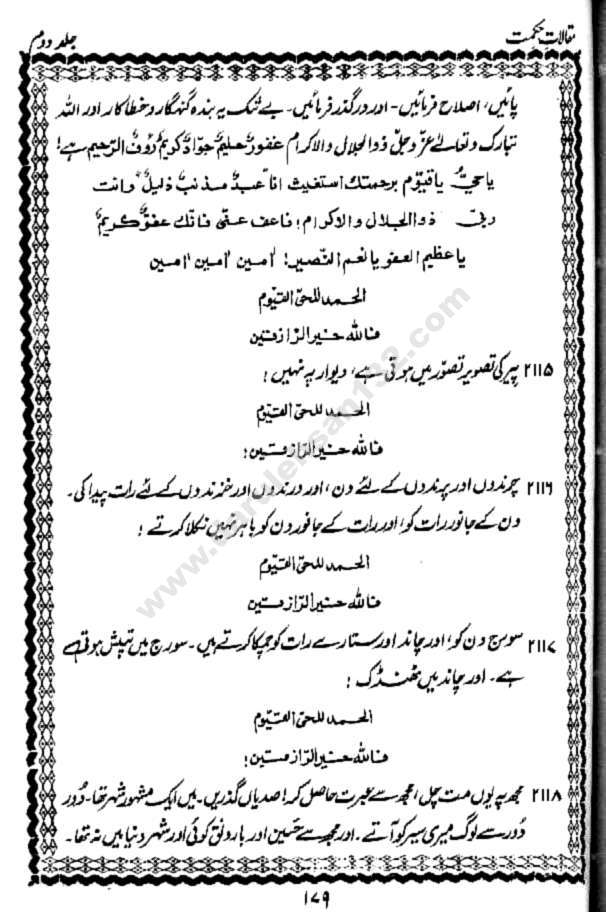 مقالاتِ حکمت
جلد دوم
پائیں، اصلاح فرمائیں۔ اور درگذر فرمائیں۔ بے شک یہ بندہ گنہگار و خطا کار اور اللہ
تبارک و تعالےٰ عزّ و جلّ ذوالجلال والاکرام غفورٌ حلیمٌ جوّادٌ کریمٌ رؤفٌ الرّحیم ہے!
یا حیُّ یا قیّوم برحمتك استغیث انا عبدٌ مذنبٌ ذلیلٌ وانت
ربّی ذوالجلال والاکرام؛ فاعف عنّی فانّك عفوٌّ کریمٌ
یا عظیم العفو یا نعم النّصیر! اٰمین اٰمین اٰمین
الحمد للحیّ القیّوم
فاللہ خیر الرّازقین
۲۱۱۵ پیر کی تصویر تصوّر میں ہوتی ہے، دیوار پہ نہیں!
الحمد للحیّ القیّوم
فاللہ خیر الرّازقین؛
۲۱۱۶ چرندوں اور پرندوں کے لئے دن، اور درندوں اور خزندوں کے لئے رات پیدا کی۔
دن کے جانور رات کو، اور رات کے جانور دن کو باہر نہیں نکلا کرتے!
الحمد للحیّ القیّوم
فاللہ خیر الرّازقین
۲۱۱۷ سورج دن کو، اور چاند اور ستارے رات کو چمکا کرتے ہیں۔ سورج میں تپش ہوتی ہے
ہے۔ اور چاند میں ٹھنڈک!
الحمد للحیّ القیّوم
فاللہ خیر الرّازقین؛
۲۱۱۸ مجھ پہ یوں مت چل، مجھ سے عبرت حاصل کر! صدیاں گذریں۔ میں ایک مشہور شہر تھا۔ دُور
دُور سے لوگ میری سیر کو آتے۔ اور مجھ سے حَسین اور بارونق کوئی اور شہر دنیا میں نہ تھا۔
۱۷۹
www.darulehsan132.com